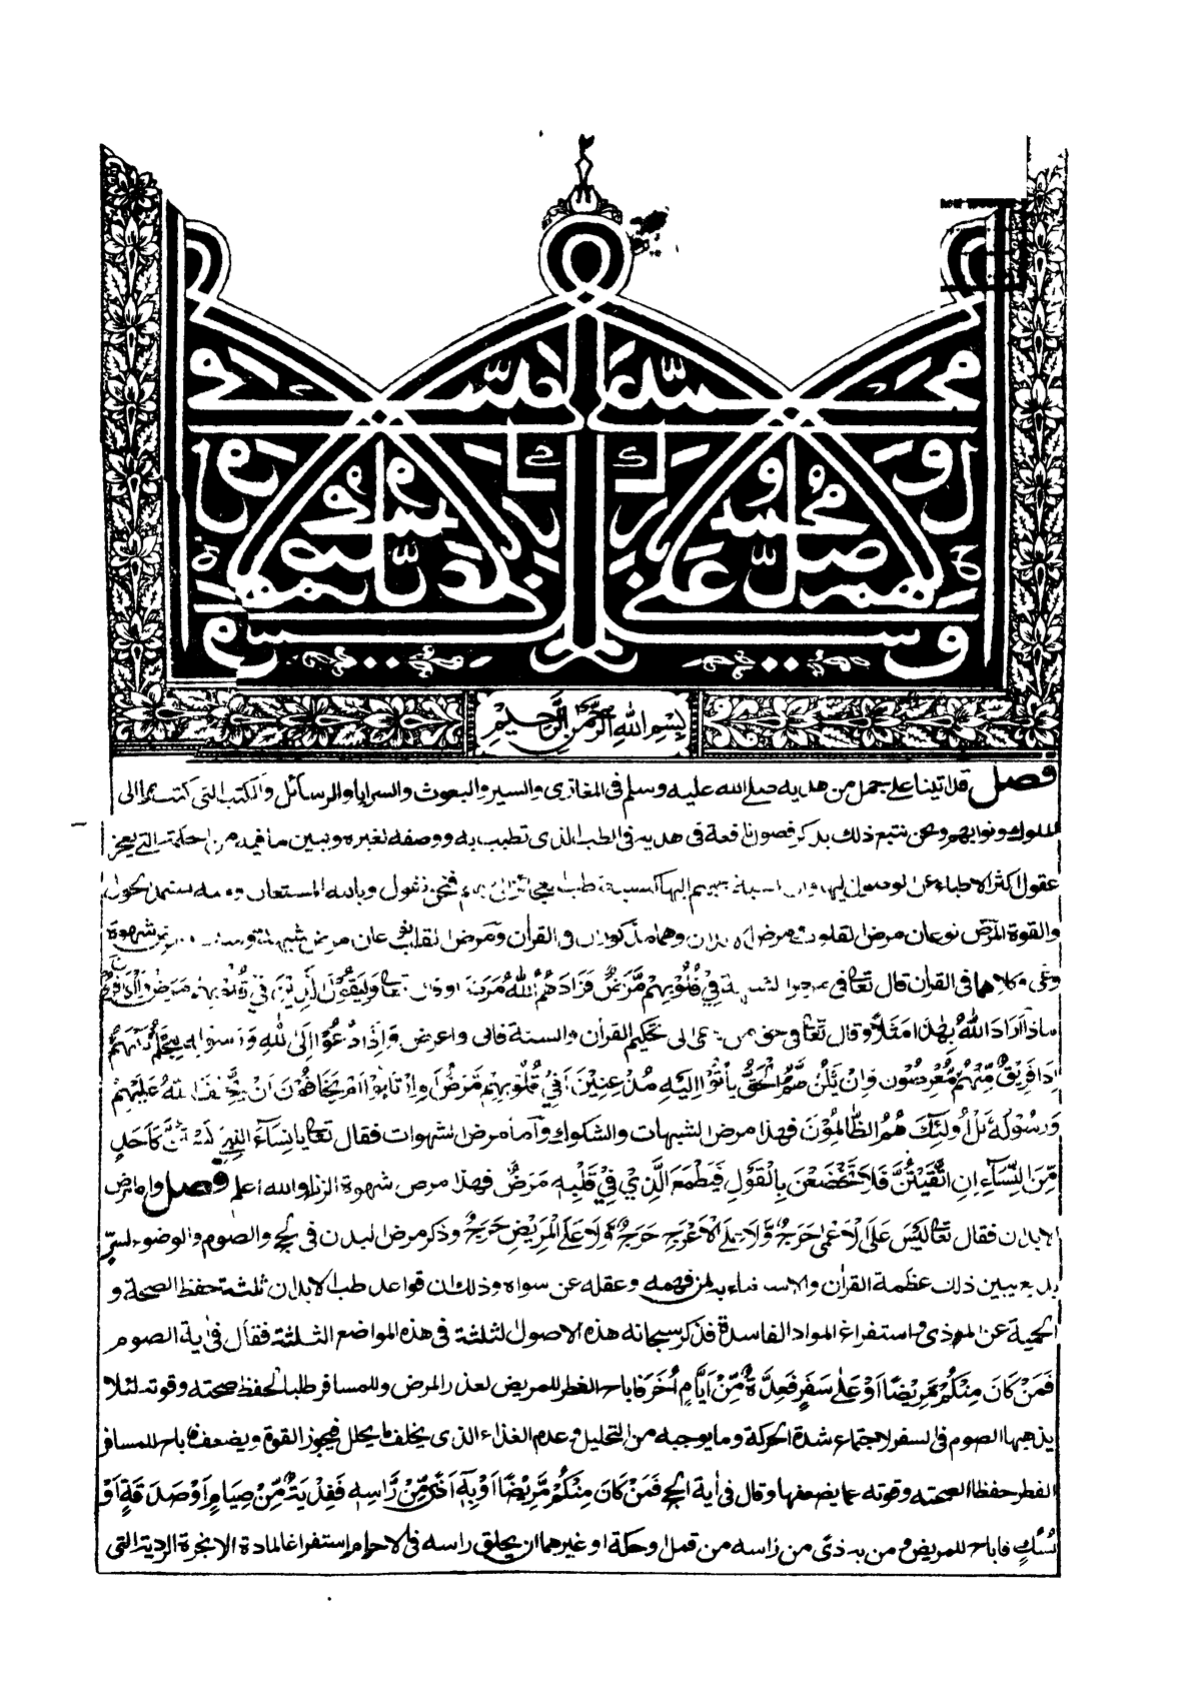 ٢
بِسْمِ اللهِ الرَّحْمٰنِ الرَّحِيْمِ
فصل قد اتينا على جمل من هديه صلى الله عليه وسلم فى المغازى والسير والبعوث والسرايا والرسائل والكتب التى كتب بها الى
الملوك ونوابهم ونحن نتبع ذلك بذكر فصول نافعة فى هديه فى الطب الذى تطبب به ووصفه لغيره ونبين ما فيه من الحكمة التى يعجز
عقول اكثر الاطباء عن الوصول اليها وان نسبة طبهم اليها كنسبة طب العجائز الى طبهم فنحن نقول وبالله المستعان ومنه نستمد الحول
والقوة المرض نوعان مرض القلوب ومرض الابدان وهما مذكوران فى القرأن ومرض القلب نوعان مرض شبهة ومرض شهوة
وغى وكلاهما فى القرأن قال تعالى فى مرض الشبهة فِيْ قُلُوْبِهِمْ مَّرَضٌ فَزَادَهُمُ اللهُ مَرَضًا وقال تعالى وَلِيَقُوْلَ الَّذِيْنَ فِيْ قُلُوْبِهِمْ مَرَضٌ وَالْكَافِرُوْنَ
مَاذَا اَرَادَ اللهُ بِهٰذَا مَثَلًا وقال تعالى فى حق من دعى الى تحكيم القرأن والسنة فابى واعرض وَاِذَا دُعُوْا اِلَى اللهِ وَرَسُوْلِهِ لِيَحْكُمَ بَيْنَهُمْ
اِذَا فَرِيْقٌ مِّنْهُمْ مُّعْرِضُوْنَ وَاِنْ يَّكُنْ لَّهُمُ الْحَقُّ يَأْتُوْا اِلَيْهِ مُذْعِنِيْنَ اَفِيْ قُلُوْبِهِمْ مَّرَضٌ اَمِ ارْتَابُوْا اَمْ يَخَافُوْنَ اَنْ يَّحِيْفَ اللهُ عَلَيْهِمْ
وَرَسُوْلُهُ بَلْ اُولٰئِكَ هُمُ الظَّالِمُوْنَ فهذا مرض الشبهات والشكوك وأما مرض الشهوات فقال تعالى يَا نِسَآءَ النَّبِيِّ لَسْتُنَّ كَاَحَدٍ
مِّنَ النِّسَآءِ اِنِ اتَّقَيْتُنَّ فَلَا تَخْضَعْنَ بِالْقَوْلِ فَيَطْمَعَ الَّذِيْ فِيْ قَلْبِهِ مَرَضٌ فهذا مرض شهوة الزنا والله اعلم فصل واما مرض
الابدان فقال تعالى لَيْسَ عَلَى الْاَعْمٰى حَرَجٌ وَّلَا عَلَى الْاَعْرَجِ حَرَجٌ وَّلَا عَلَى الْمَرِيْضِ حَرَجٌ وذكر مرض البدن فى الحج والصوم والوضوء لسر
بديع يبين لك عظمة القرأن والاستغناء به لمن فهمه وعقله عن سواه وذلك ان قواعد طب الابدان ثلثة حفظ الصحة و
الحمية عن الموذى واستفراغ المواد الفاسدة فذكر سبحانه هذه الاصول الثلثة فى هذه المواضع الثلثة فقال فى أية الصوم
فَمَنْ كَانَ مِنْكُمْ مَّرِيْضًا اَوْ عَلٰى سَفَرٍ فَعِدَّةٌ مِّنْ اَيَّامٍ اُخَرَ فاباح الفطر للمريض لعذر المرض وللمسافر طلبا لحفظ صحته وقوته لئلا
يذهبها الصوم فى السفر لاجتماع شدة الحركة وما يوجبه من التحليل وعدم الغذاء الذى يخلف ما يحلل فيجوز القوة ويضعف فاباح للمسافر
الفطر حفظا لصحته وقوته عما يضعفها وقال فى أية الحج فَمَنْ كَانَ مِنْكُمْ مَّرِيْضًا اَوْ بِهِ اَذًى مِّنْ رَّاْسِهِ فَفِدْيَةٌ مِّنْ صِيَامٍ اَوْ صَدَقَةٍ اَوْ
نُسُكٍ فاباح للمريض ومن به اذى من راسه من قمل او حكة او غيرهما ان يحلق راسه فى الاحرام استفراغا لمادة الابخرة الردية التى